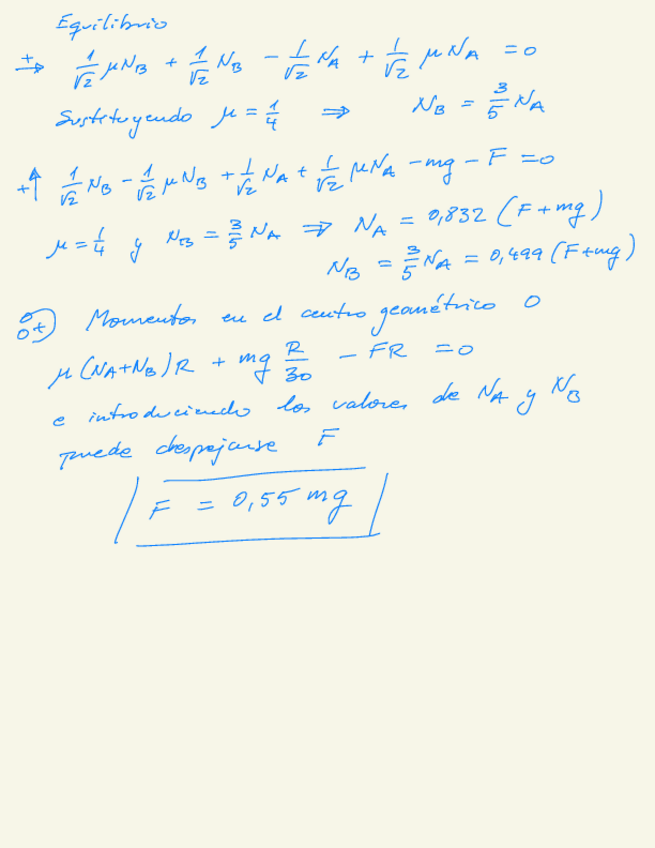 Equilibrio
+→ 1/√2 μN_B + 1/√2 N_B - 1/√2 N_A + 1/√2 μN_A = 0
Sustituyendo μ = 1/4 ⇒ N_B = 3/5 N_A
+↑ 1/√2 N_B - 1/√2 μN_B + 1/√2 N_A + 1/√2 μN_A - mg - F = 0
μ = 1/4 y N_B = 3/5 N_A ⇒ N_A = 0,832 (F + mg)
N_B = 3/5 N_A = 0,499 (F + mg)
Momentos en el centro geométrico O
μ(N_A+N_B)R + mg R/30 - FR = 0
e introduciendo los valores de N_A y N_B
puede despejarse F
F = 0,55 mg